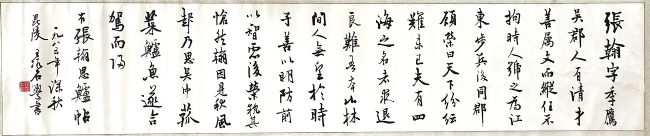 張翰字季鷹
吳郡人有清才
善屬文而縱任不
拘時人號之為江
東步兵後同郡
顧榮曰天下紛紜
難未已夫有四
海之名者求退
良難吾本山林
間人無望於時
子善以明防前
以智慮後榮執其
愴然翰因見秋風
起乃思吳中菰
菜鱸魚遂命
駕而歸
右張翰思鱸帖
一九八三年深秋
學書